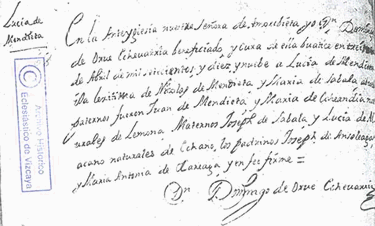 Lucia de
Mendieta
En la Anteyglesia nuestra Señora de Amorebieta yo Dn Domingo
de Orue Echeuarria beneficiado, y cura se ella bautice en treinta
de Abril de mil setecientos y diez y nuebe a Lucia de Mendieta
hija lexitima de Nicolas de Mendieta y Maria de Zabala abuelos
paternos fueron Juan de Mendieta, y Maria de
naturales de Lemona, Maternos Joseph de Zabala y Lucia de
naturales de Echano, los padrinos Joseph de
y Maria Antonia de Lareaga, y en fee firme =
Dn Domingo de Orue Echeuarria
Archivo Histórico
Eclesiástico de Vizcaya